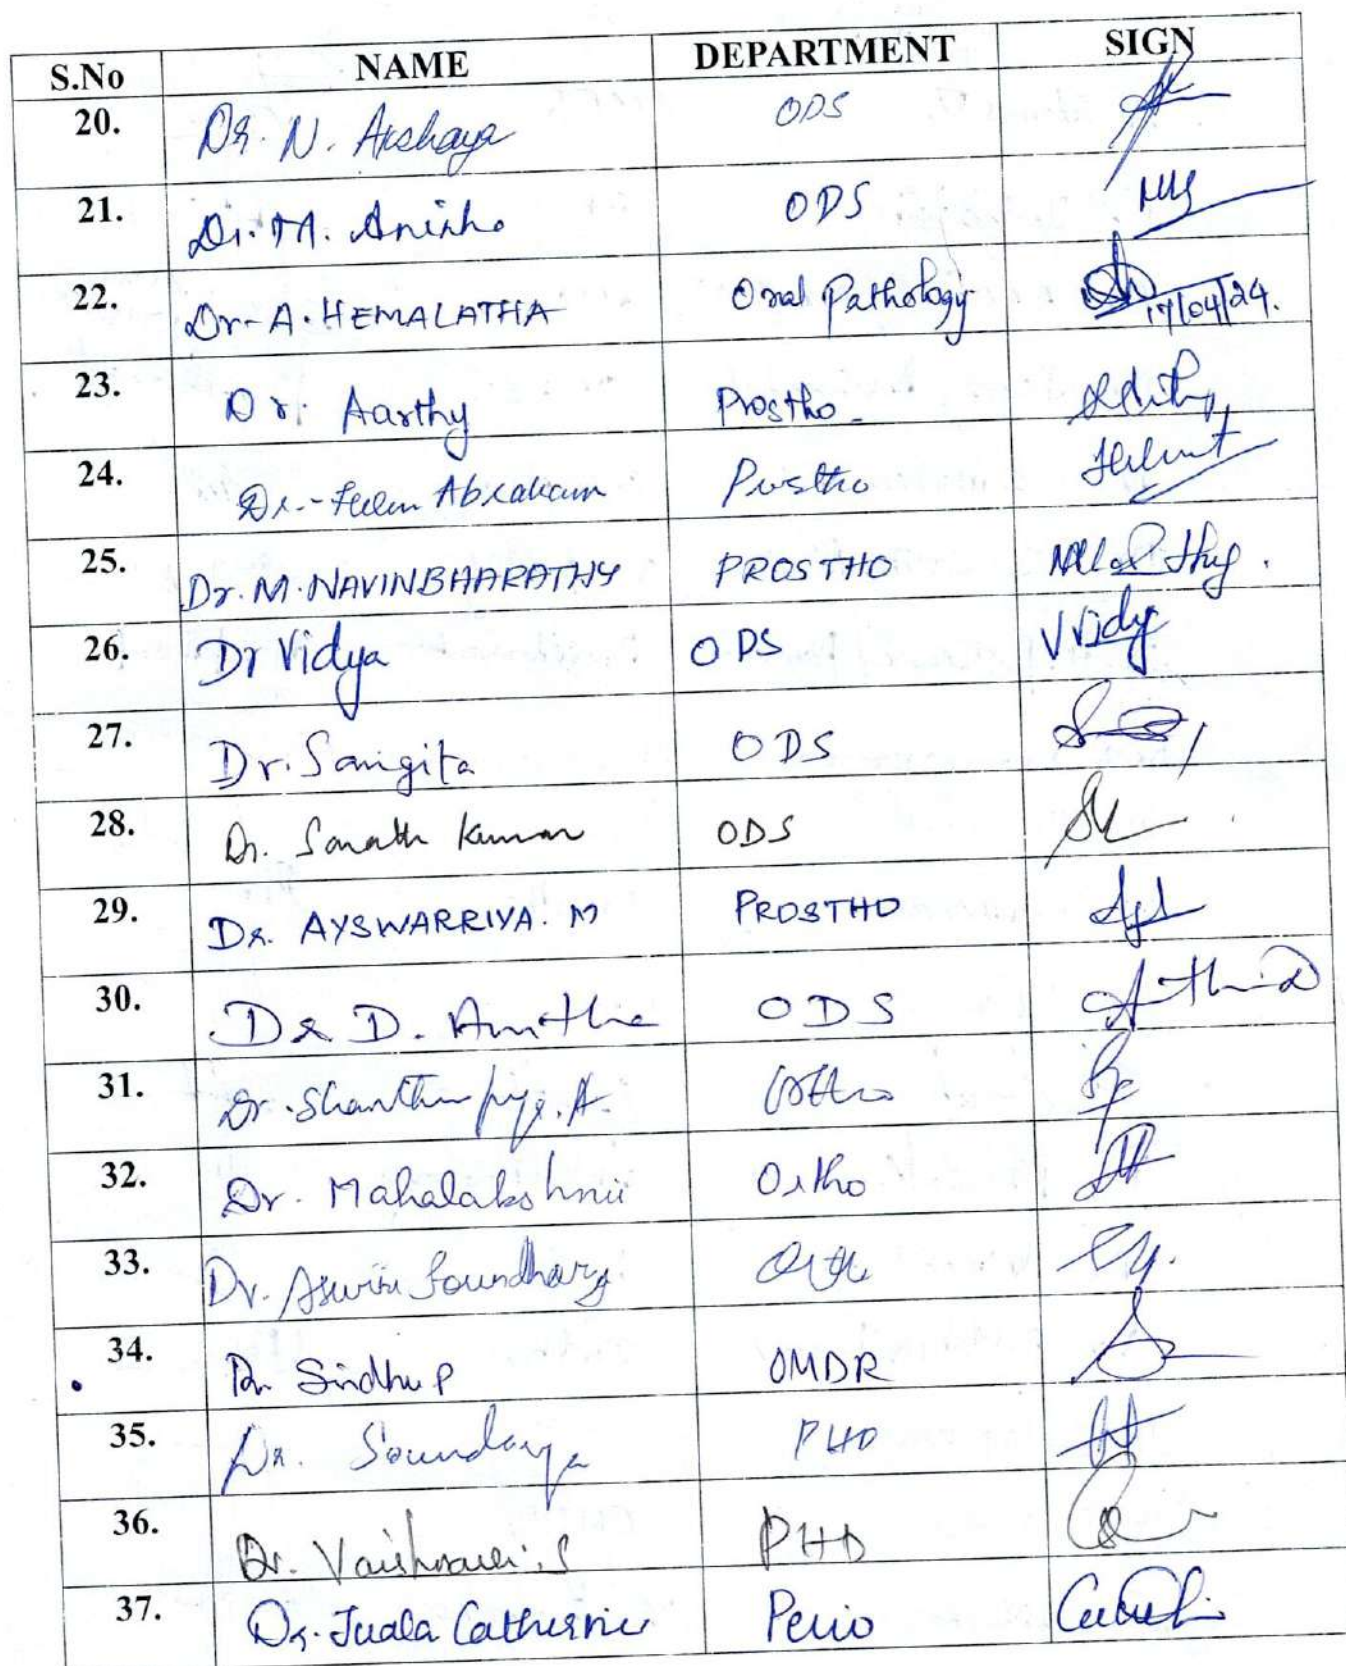 S.No NAME DEPARTMENT SIGN
20. Dr. N. Akshaya ODS
21. Dr. M. Anisha ODS
22. Dr. A. HEMALATHA Oral Pathology 17/04/24.
23. Dr. Aarthy Prostho
24. Dr. Helen Abraham Prostho
25. Dr. M. NAVINBHARATHY PROSTHO
26. Dr Vidya ODS V Vidy
27. Dr. Sangita ODS
28. Dr. Sarath Kumar ODS
29. Dr. AYSWARRIYA. M PROSTHO
30. Dr D. Anitha ODS
31. Dr. Shanthi priya. A. Ortho
32. Dr. Mahalakshmi Ortho
33. Dr. Aswin Soundharya Ortho
34. Dr Sindhu P OMDR
35. Dr. Soundarya PHD
36. Dr. Vaishnavi. S PHD
37. Dr. Juala Catherine Perio